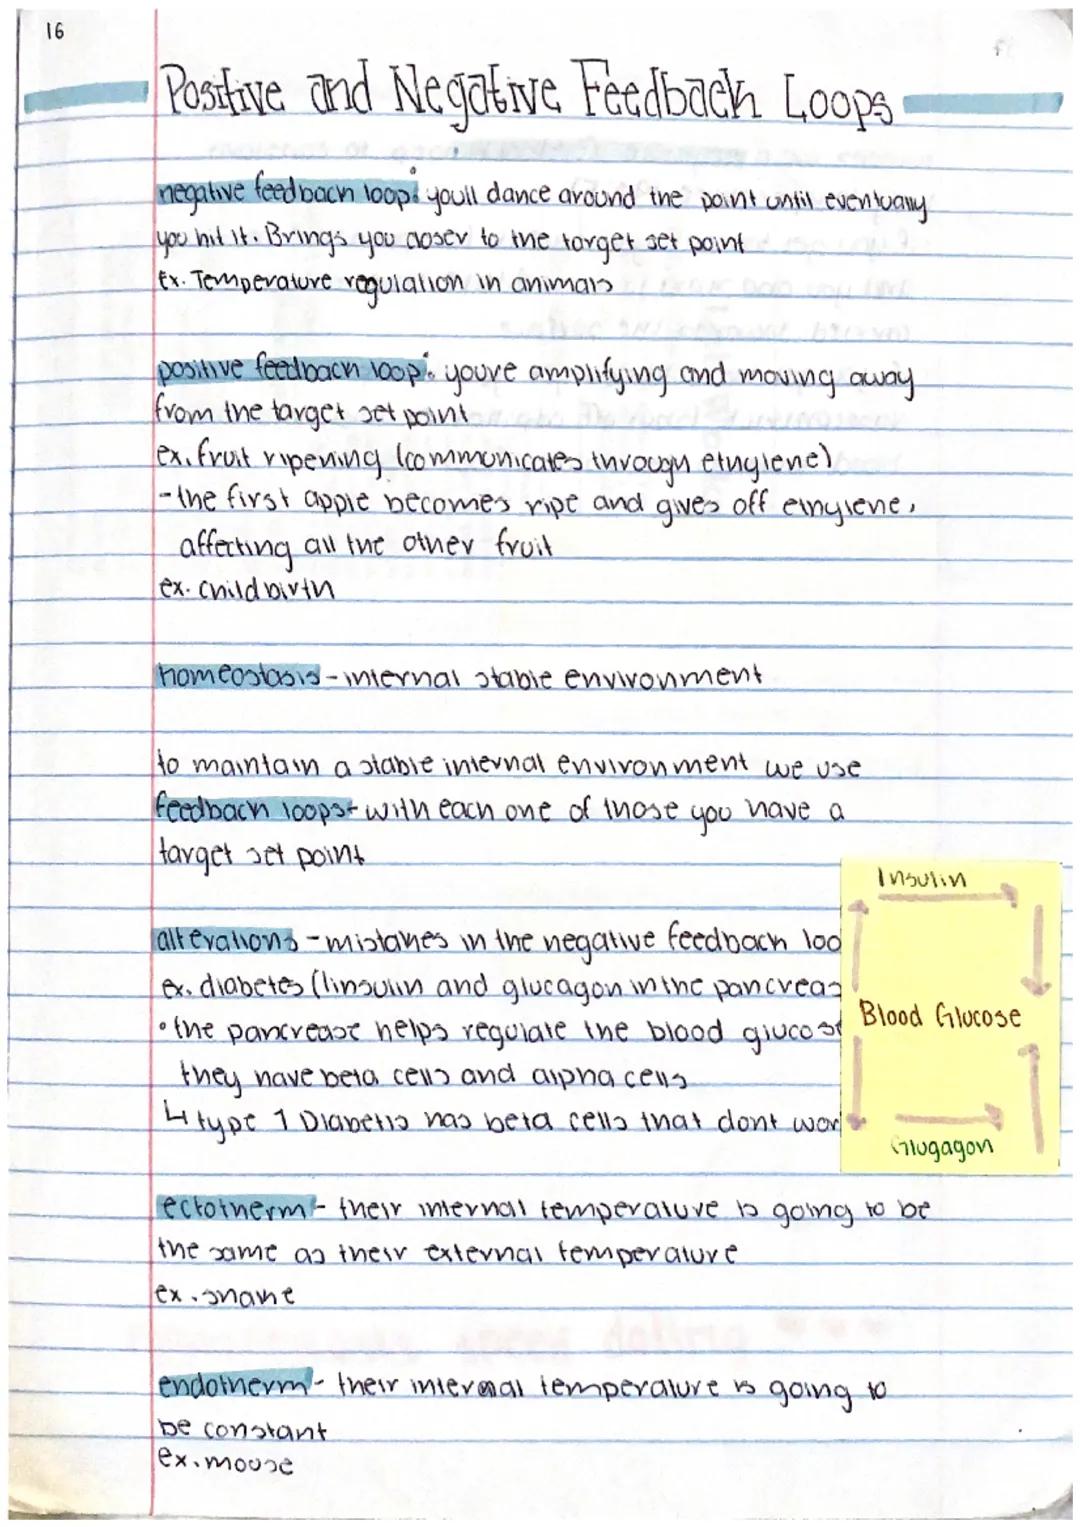 16
Positive and Negative Feedback Loops
negative feedback loop: youll dance around the point until eventually
you hit it. Brings you closer to the target set point
Ex. Temperature regulation in animals
positive feedback loop: youre amplifying and moving away
from the target set point
ex. fruit ripening (communicates through ethylene)
- the first apple becomes ripe and gives off ethylene,
affecting all the other fruit
ex. childbirth
homeostasis - internal stable environment
to maintain a stable internal environment we use
feedback loops - with each one of those you have a
target set point
alterations - mistakes in the negative feedback loo
ex. diabetes (linsulin and glucagon in the pancreas
• the pancrease helps regulate the blood glucose
they have beta cells and alpha cells
↳ type 1 Diabetis has beta cells that dont wor
Insulin
Blood Glucose
Glugagon
ectotherm - their internal temperature is going to be
the same as their external temperature
ex. snake
endotherm - their internal temperature is going to
be constant
ex. mouse